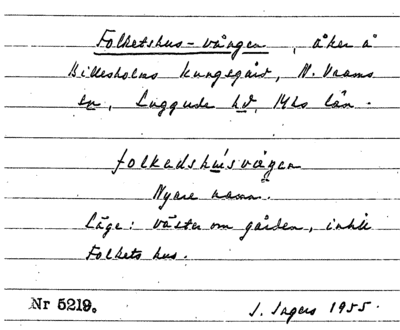 Folketshus-vången, åker å
Billesholms kungsgård, N. Vrams
sn, Luggude hd, Mhs län.
folkadshúsvåŋen
Nyare namn.
Läge: väster om gården, intill
Folkets hus.
Nr 5219. J. Ingers 1955.